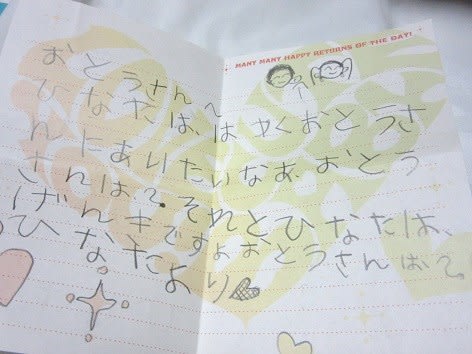 MANY MANY HAPPY RETURNS OF THE DAY!
おとうさんへ
ひなたは、はやくおとうさ
んにありたいなあ、おとう
さんは?。それとひなたは、
げんきですよおとうさんは?。
ひなたより